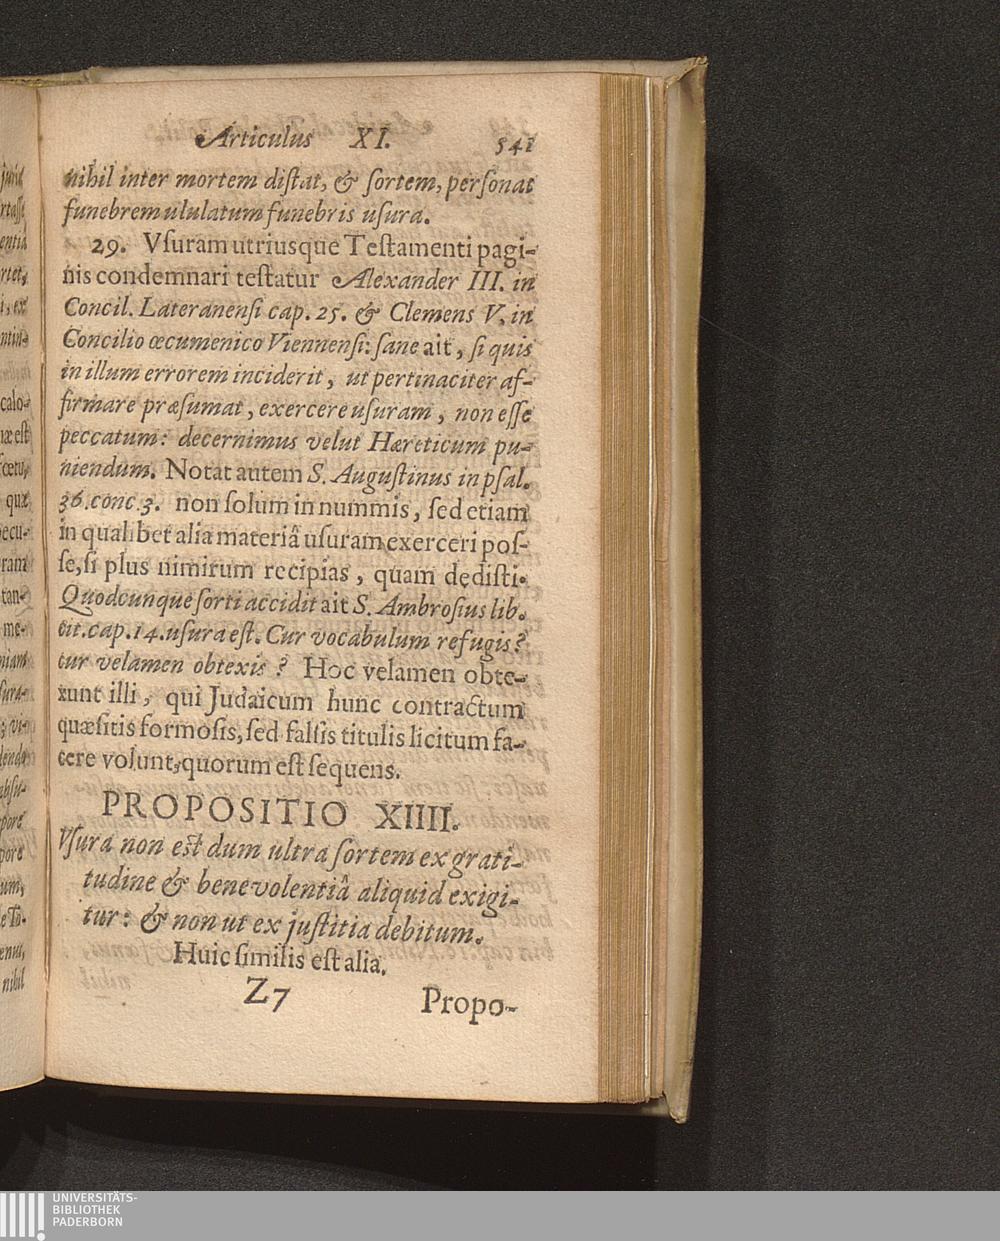 Articulus XI. 541
nihil inter mortem distat, & sortem, personat
funebrem ululatum funebris usura.
29. Vsuram utriusque Testamenti pagi-
nis condemnari testatur Alexander III. in
Concil. Lateranensi cap. 25. & Clemens V. in
Concilio œcumenico Viennensi: sane ait, si quis
in illum errorem inciderit, ut pertinaciter af-
firmare præsumat, exercere usuram, non esse
peccatum: decernimus velut Hæreticum pu-
niendum. Notat autem S. Augustinus in psal.
36. conc. 3. non solum in nummis, sed etiam
in qualibet alia materiâ usuram exerceri pos-
se, si plus nimirum recipias, quam dedisti.
Quodcunque sorti accidit ait S. Ambrosius lib.
cit. cap. 14. usura est. Cur vocabulum refugis?
cur velamen obtexis? Hoc velamen obte-
xunt illi, qui Judaicum hunc contractum
quæsitis formosis, sed falsis titulis licitum fa-
cere volunt, quorum est sequens.
PROPOSITIO XIIII.
Vsura non est dum ultra sortem ex grati-
tudine & benevolentiâ aliquid exigi-
tur: & non ut ex justitia debitum.
Huic similis est alia.
Z7 Propo-
UNIVERSITÄTS-
BIBLIOTHEK
PADERBORN